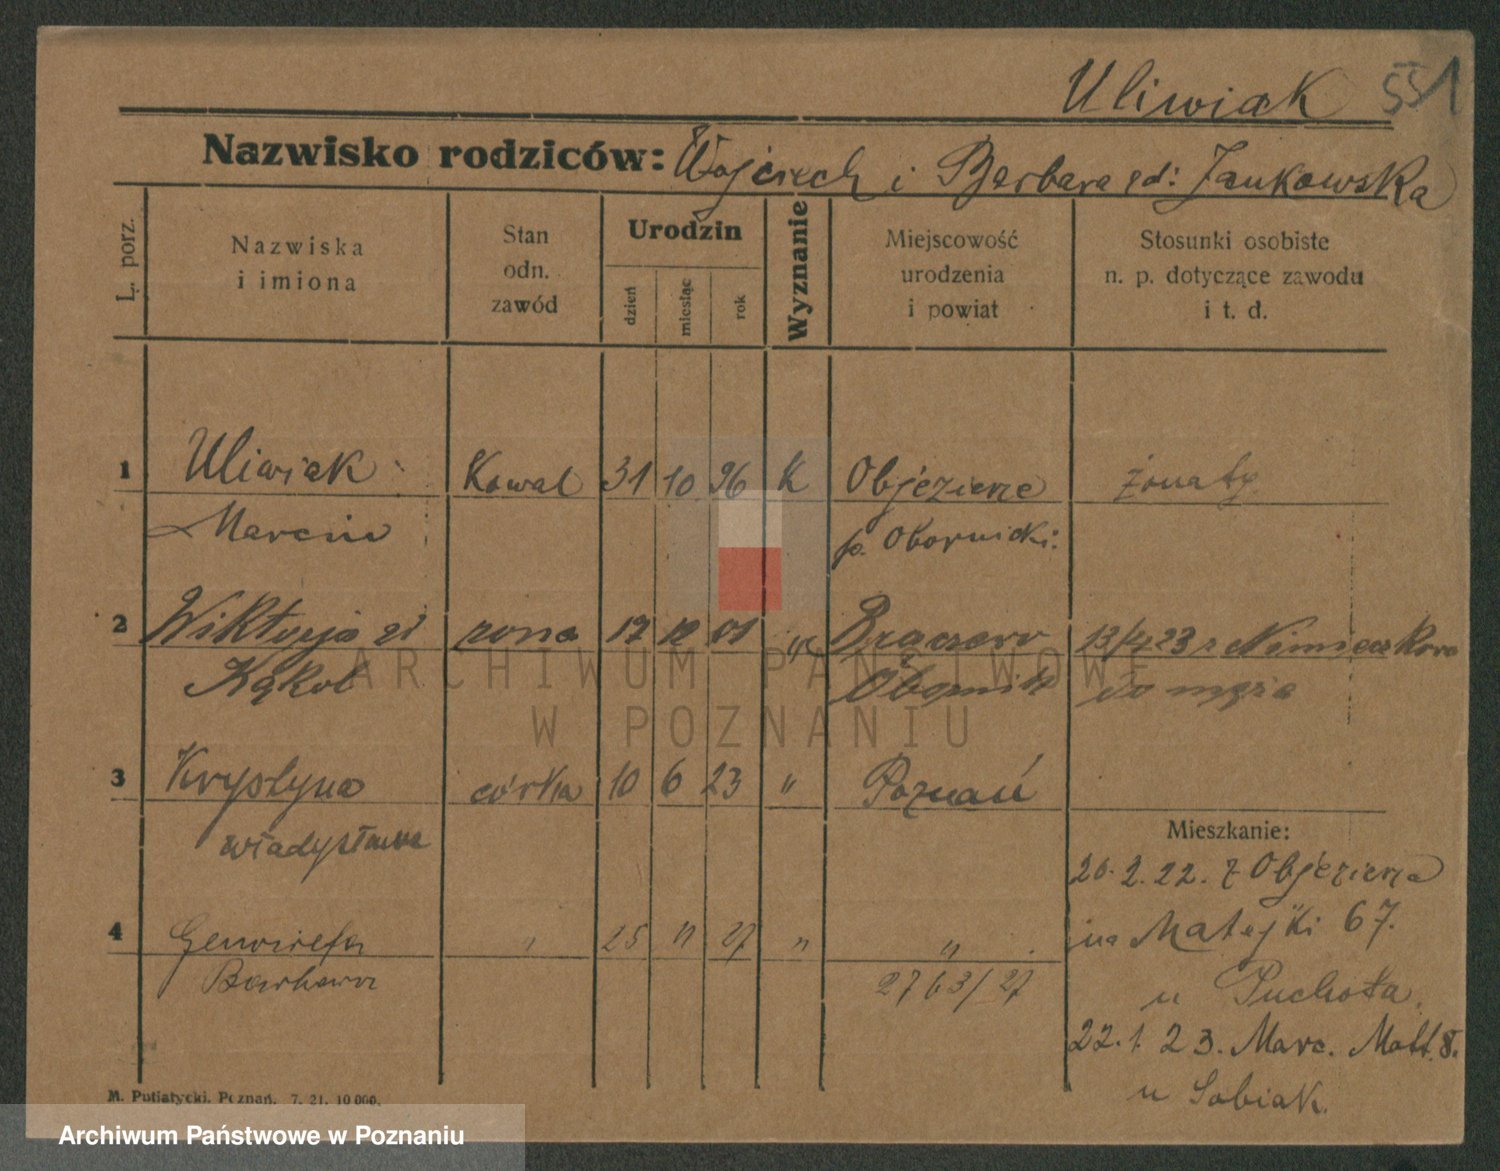 Uliwiak 551
Nazwisko rodziców: Wojciech i Barbara Jankowska
L. porz.
Nazwiska
i imiona
Stan
odn.
zawód
Urodzin
dzień
miesiąc
rok
Wyznanie
Miejscowość
urodzenia
i powiat
Stosunki osobiste
n. p. dotyczące zawodu
i t. d.
1 Uliwiak Kowal 31 10 96 K Objezierze żonaty
Marcin p. Obornicki:
2 Wiktorja żona 17 12 01 "
Kąkol do męża
3 Krystyna córka 10 6 23 " Poznań
Władysława
Mieszkanie:
20. 2. 22. z Objezierza
na Matejki 67.
u Puchała.
4 Genowefa " 25 " 27 " "
Barbara 2763/27
22. 1. 23. Marc. Mott. 8.
u Sobiak.
M. Putiatycki, Poznań, 7. 21. 10 000.
ARCHIWUM PAŃSTWOWE
W POZNANIU
Archiwum Państwowe w Poznaniu